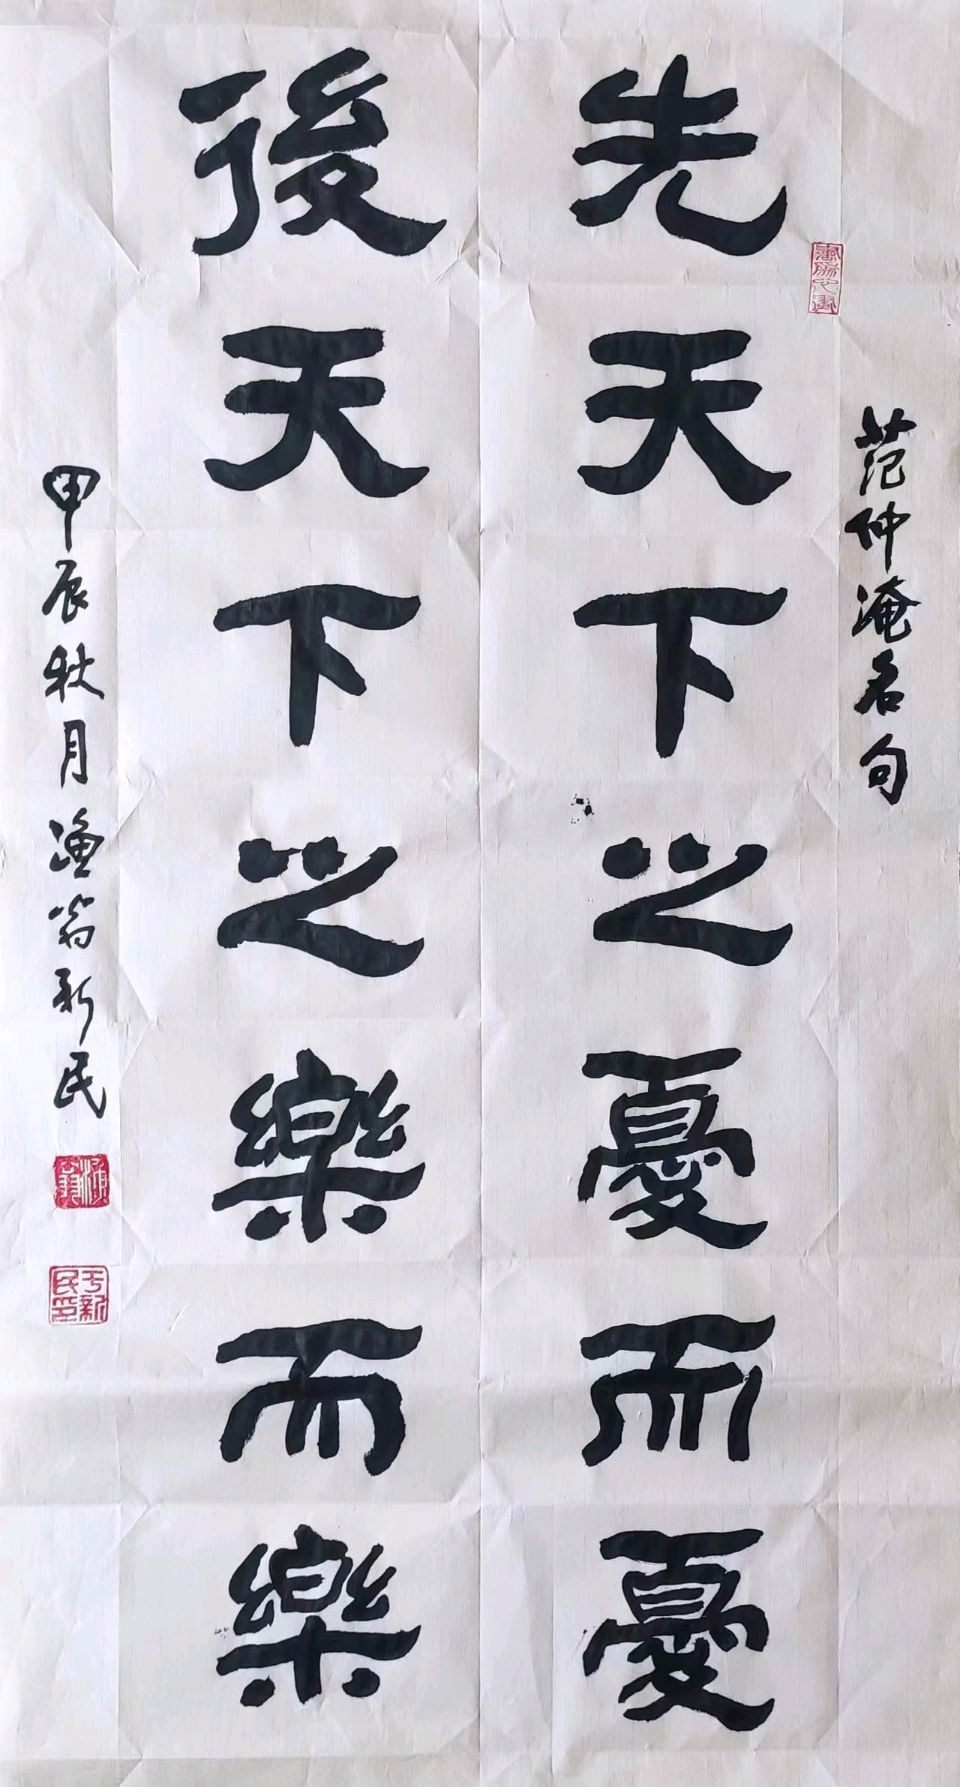 范仲淹名句
先天下之憂而憂
後天下之樂而樂
甲辰秋月渔翁新民
于新民印